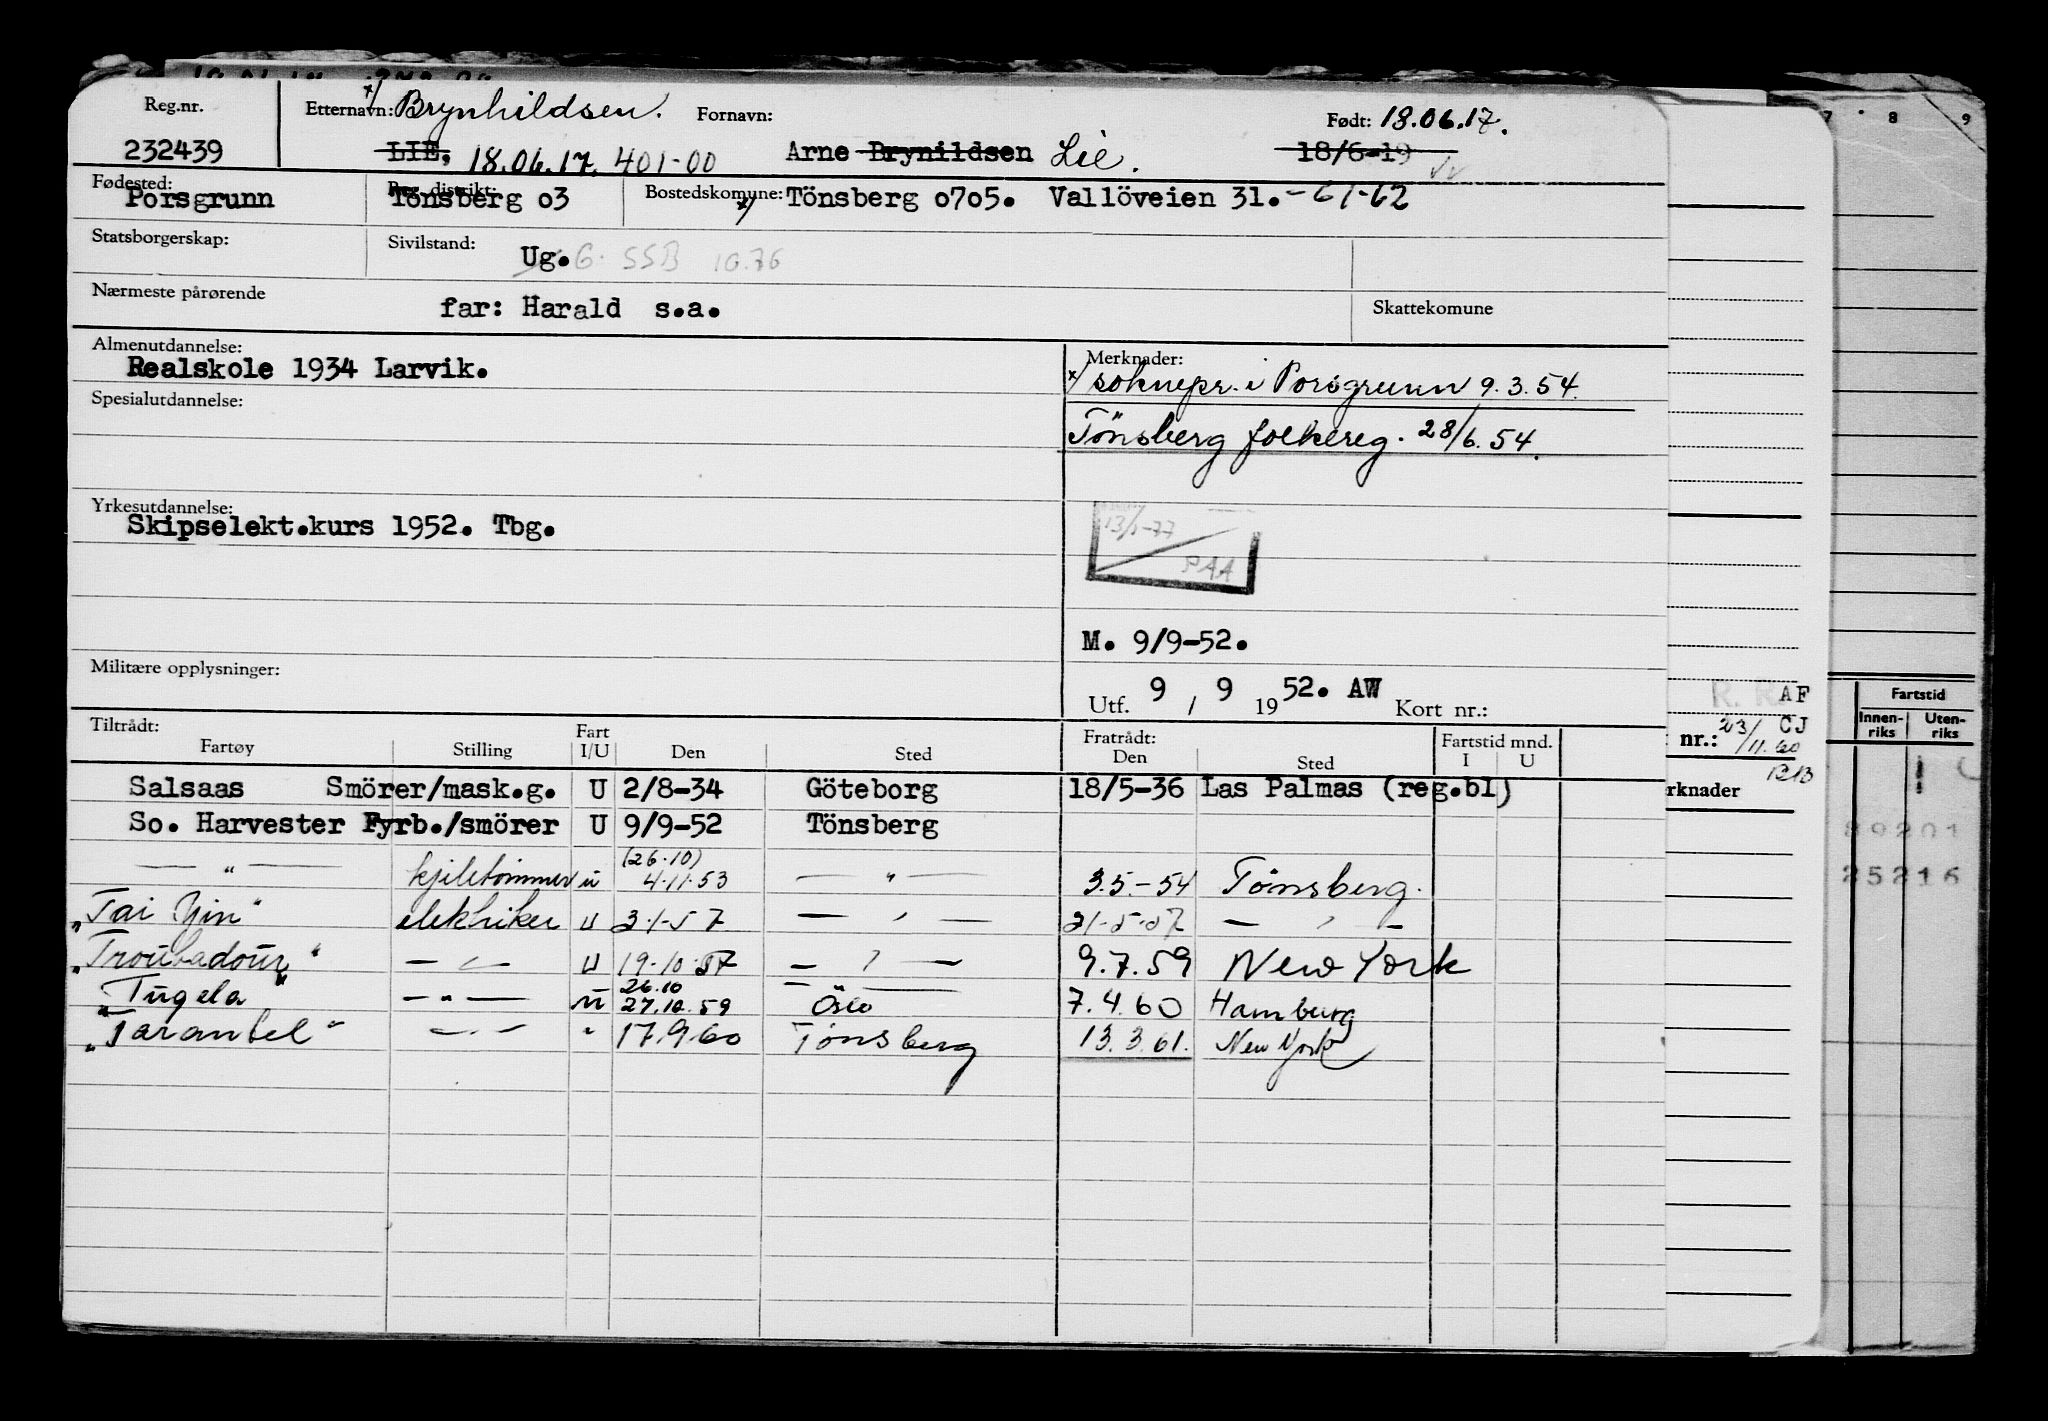 Reg.nr. Etternavn: x/ Brynhildsen. Fornavn: Født: 18.06.17.
232439 LIE, 18.06.17. 401-00 Arne Brynildsen Lie. 18/6-19
Fødested: Reg. distrikt: Bostedskomune:
Porsgrunn Tönsberg o3 x/ Tönsberg o7o5. Vallöveien 31.-61-62
Statsborgerskap: Sivilstand:
Ug. G. SSB 10.76
Nærmeste pårørende Skattekomune
far: Harald s.a.
Almenutdannelse: Merknader:
Realskole 1934 Larvik. x/ soknepr. i Porsgrunn 9.3.54.
Spesialutdannelse:
Tönsberg folkereg. 28/6.54.
Yrkesutdannelse:
Skipselekt.kurs 1952. Tbg.
PAA
M. 9/9-52.
Militære opplysninger:
Utf. 9 / 9 1952. AW Kort nr.:
Tiltrådt: Fratrådt:
Fartøy Stilling Fart I/U Den Sted Den Sted Fartstid mnd. I U
Salsaas Smörer/mask.g. U 2/8-34 Göteborg 18/5-36 Las Palmas (reg.bl)
So. Harvester Fyrb./smörer U 9/9-52 Tönsberg
— " — kjeletømmer u (26.10) 4.11.53 — " — 3.5.-54 Tönsberg.
"Tai Yin" elektriker U 3.1-57 — " — 21-5-57 — " —
"Troubadour" — " — U 19.10.57 — " — 9.7.59 New York
"Tugela" — " — U 26.10 27.10.59 Oslo 7.4.60 Hamburg
"Tarantel" — " — " 17.9.60 Tönsberg 13.3.61. New York
7 8 9
AF
CJ
nr.: 23/11.60
rknader
Fartstid
Innen-riks Uten-riks
89201
25216